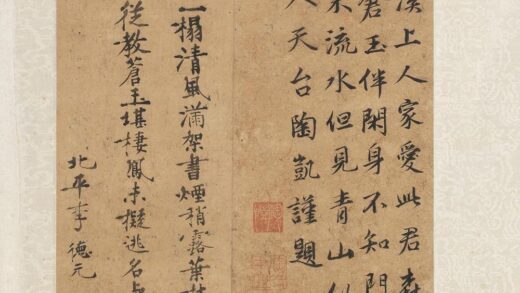 溪上人家愛此君森
蒼玉伴閑身不知門
流水但見青山
天台陶凱謹題
一榻清風滿架書煙梢露葉
從教蒼玉堪棲鳳未擬逃名
北平李德元